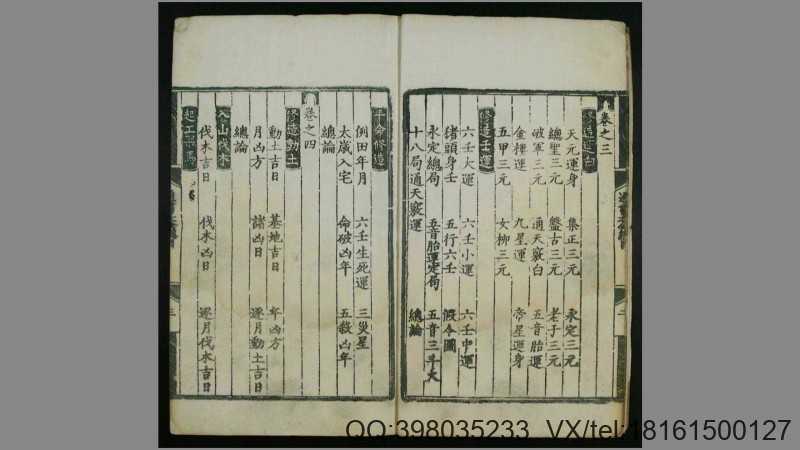 卷之三
修造運白
天元運身 集正三元 永定三元
總聖三元 盤古三元 老子三元
破軍三元 通天竅白 五音胎運
金禋運 九星運 帝星運身
五甲三元 女柳三元
修造壬運
六壬大運 六壬小運 六壬中運
猪頭身壬 五行六壬 假令圖
永定總局 五音胎運定局 五音三斗火
十八局通天竅運 總論
年命修造
例田年月 六壬生死運 三災星
太歲入宅 命破凶年 五殺凶年
總論
卷之四
修造動土
動土吉日 基地吉日 年凶方
月凶方 諸凶日 逐月動土吉日
總論
入山伐木
伐木吉日 伐木凶日 逐月伐木吉日
起工
三
QQ:398035233 VX/tel:18161500127